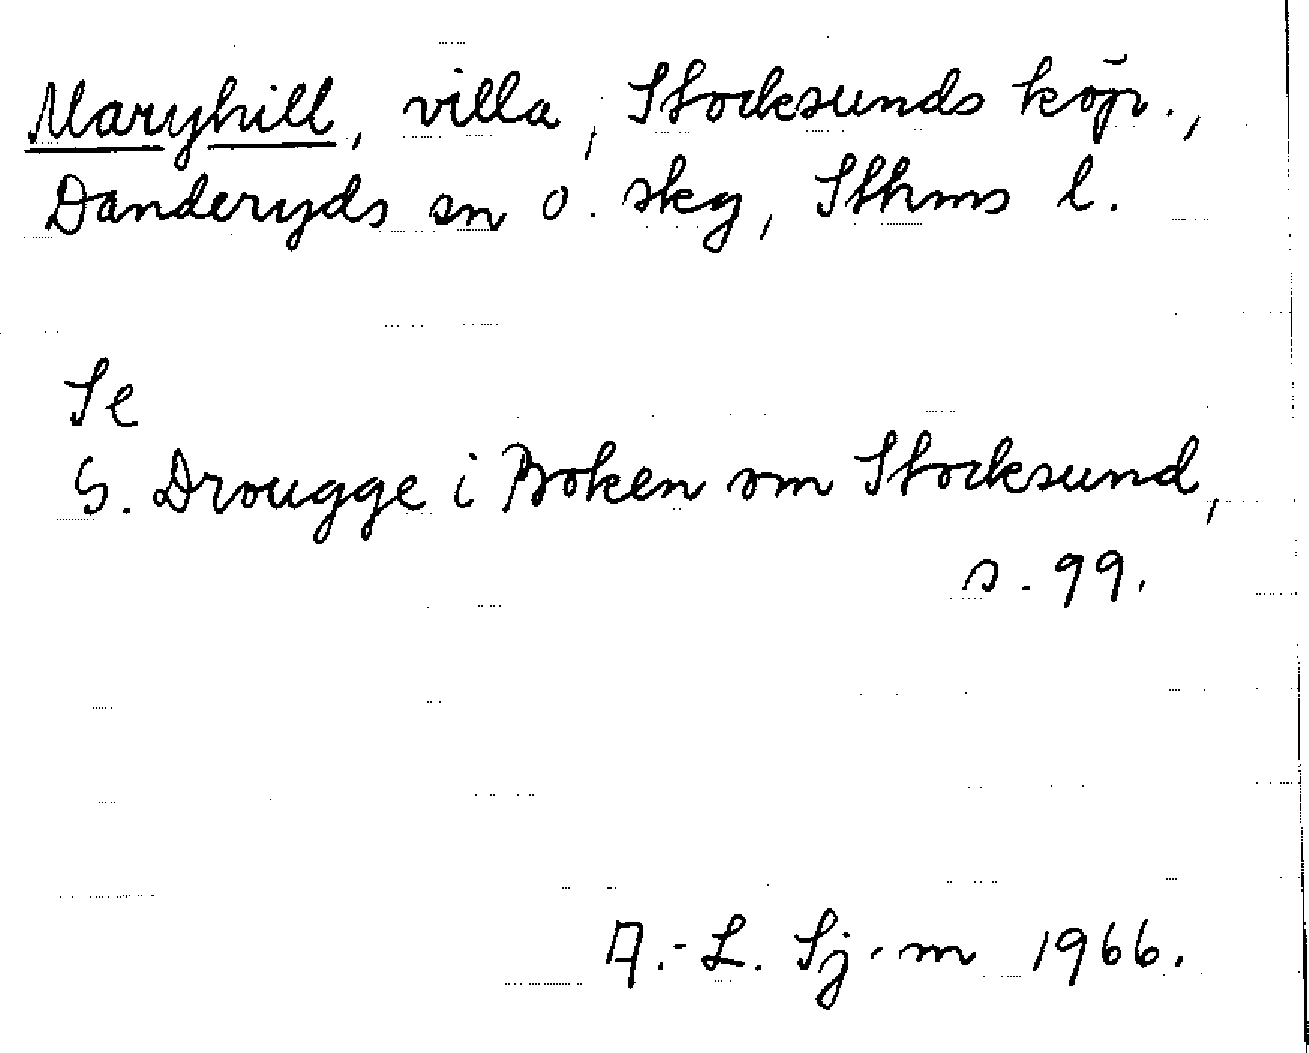 Maryhill, villa, Stocksunds köp.,
Danderyds sn o. skg, Sthms l.
Se
G. Drougge i Boken om Stocksund,
s. 99.
A.-L. Sj-m 1966.